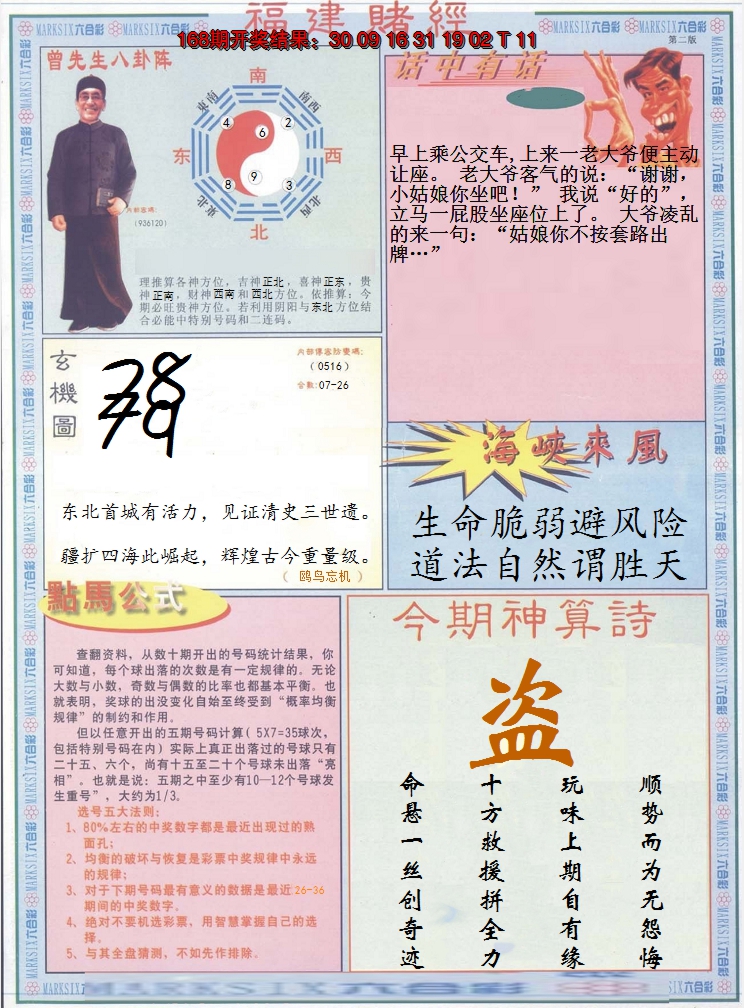 福建賭經
168期开奖结果：30 09 16 31 19 02 T 11
第二版
MARKSIX六合彩
曾先生八卦阵
南
东南
南西
4
6
2
东
西
8
9
3
东北
北西
北
内部密码：
（936120）
理推算各神方位，吉神正北，喜神正东，贵
神正南，财神西南和西北方位。依推算：今
期必旺贵神方位。若利用阴阳与东北方位结
合必能中特别号码和二连码。
话中有话
早上乘公交车,上来一老大爷便主动
让座。 老大爷客气的说：“谢谢，
小姑娘你坐吧！” 我说“好的”，
立马一屁股坐座位上了。 大爷凌乱
的来一句：“姑娘你不按套路出
牌…”
玄機圖
内部傳密防變碼：
（0516）
合數:07-26
东北首城有活力，见证清史三世遗。
疆扩四海此崛起，辉煌古今重量级。
（ 鸥鸟忘机 ）
海峽來風
生命脆弱避风险
道法自然谓胜天
點馬公式
查翻资料，从数十期开出的号码统计结果，你
可知道，每个球出落的次数是有一定规律的。无论
大数与小数，奇数与偶数的比率也都基本平衡。也
就表明，奖球的出没变化自始至终受到“概率均衡
规律”的制约和作用。
但以任意开出的五期号码计算( 5X7=35球次，
包括特别号码在内）实际上真正出落过的号球只有
二十五、六个，尚有十五至二十个号球未出落“亮
相”。也就是说：五期之中至少有10—12个号球发
生重号”，大约为1/3。
选号五大法则：
1、80%左右的中奖数字都是最近出现过的熟
面孔；
2、均衡的破坏与恢复是彩票中奖规律中永远
的规律；
3、对于下期号码最有意义的数据是最近26-36
期间的中奖数字。
4、绝对不要机选彩票，用智慧掌握自己的选
择。
5、与其全盘猜测，不如先作排除。
今期神算詩
盗
顺势而为无怨悔
玩味上期自有缘
十方救援拼全力
命悬一丝创奇迹